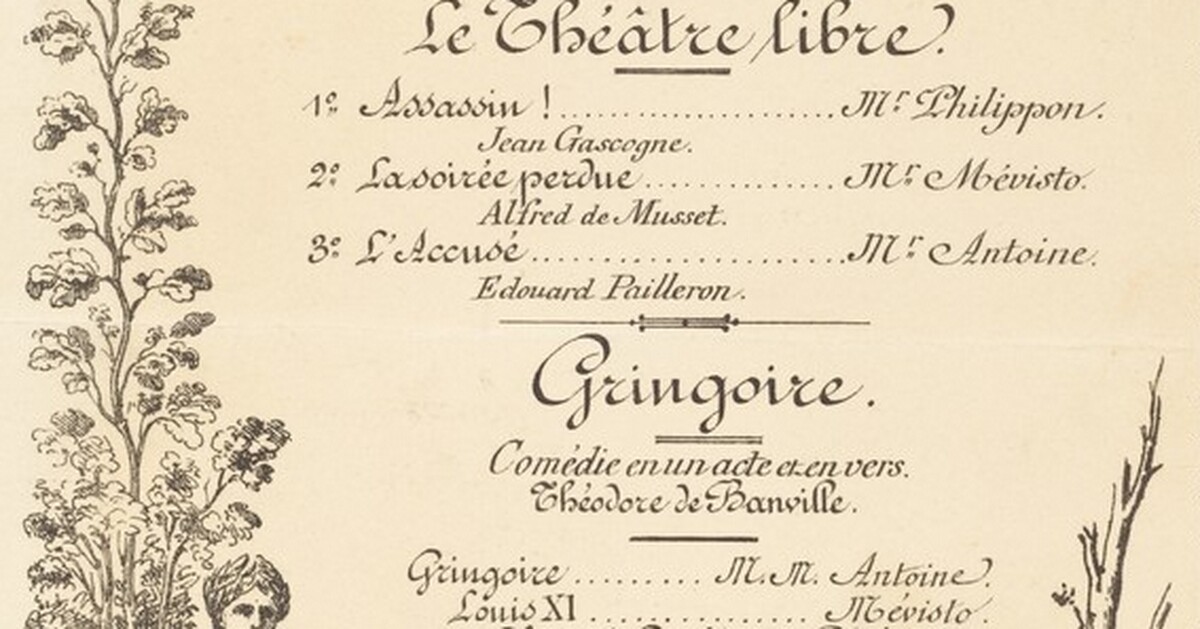 Le Théâtre libre.
1º Assassin !.......................Mr Philippon.
Jean Gascogne.
2º La soirée perdue..............Mr Mévisto.
Alfred de Musset.
3º L'Accusé.......................Mr Antoine.
Edouard Pailleron.
Gringoire.
Comédie en un acte et en vers.
Théodore de Banville.
Gringoire.........M.M. Antoine.
Louis XI................Mévisto.